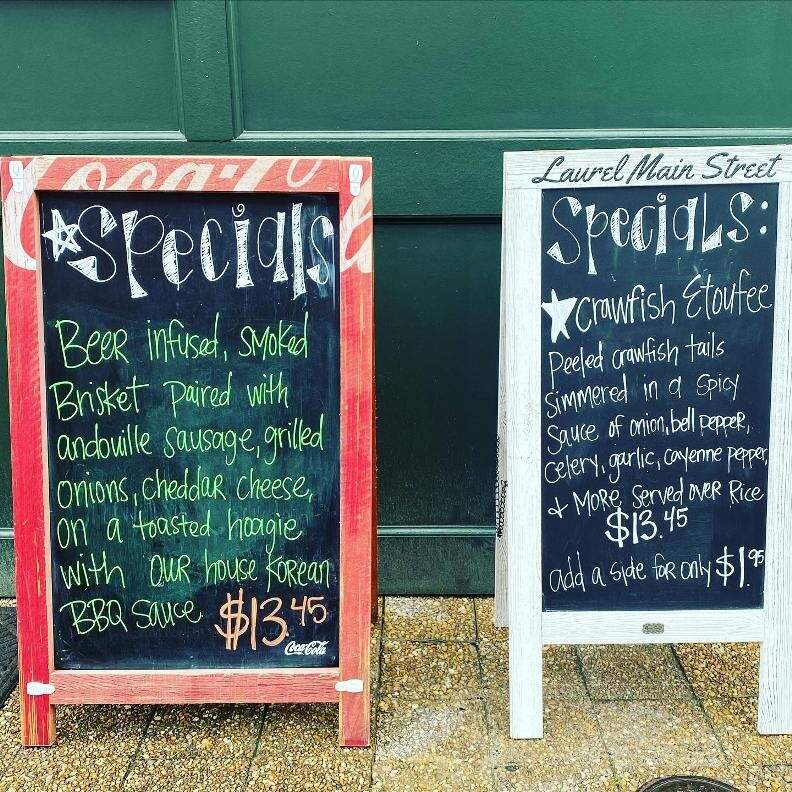 Coca-Cola
Specials
Beer infused, smoked
Brisket paired with
andouille sausage, grilled
onions, cheddar cheese,
on a toasted hoagie
with our house Korean
BBQ Sauce $13.45
Coca-Cola
Laurel Main Street
Specials:
Crawfish Etoufee
Peeled crawfish tails
simmered in a spicy
sauce of onion, bell pepper,
celery, garlic, cayenne pepper,
& More, Served over Rice
$13.45
add a side for only $1.95